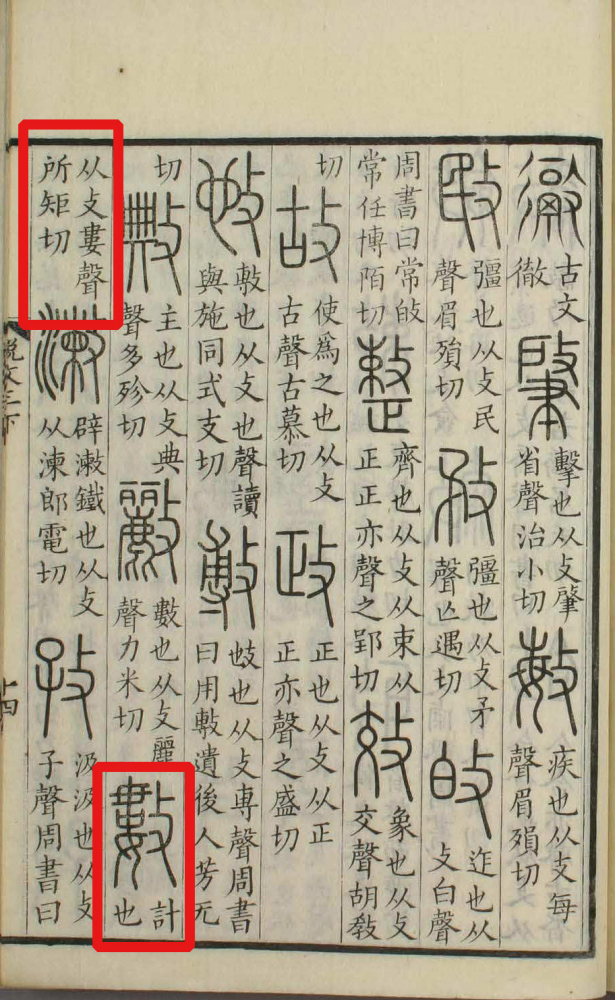 𢕹古文徹肇擊也从攴肇省聲治小切敏疾也从攴每聲眉殞切
敃彊也从攴民聲眉殞切敄彊也从攴矛聲亾遇切敀迮也从攴白聲
周書曰常敀常任博陌切整齊也从攴从束从正正亦聲之郢切效象也从攴交聲胡敎
切故使爲之也从攴古聲古慕切政正也从攴从正正亦聲之盛切
𢻱敷也从攴也聲讀與施同式支切敷𢻱也从攴尃聲周書曰用敷遺後人芳无
切敟主也从攴典聲多殄切𢿨數也从攴麗聲力米切數計也
从攴婁聲所矩切𣿊辟𣿊鐵也从攴从湅郎電切孜汲汲也从攴子聲周書曰
說文三下